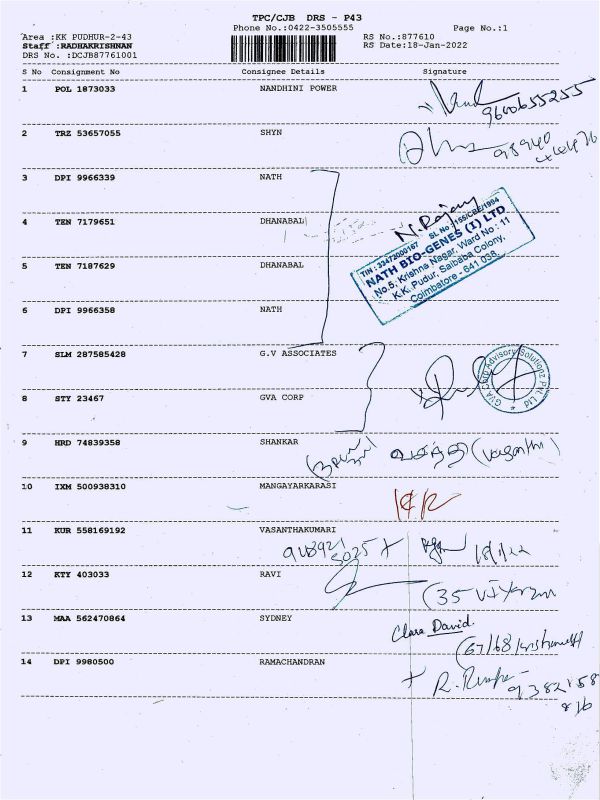 TPC/CJB DRS - P43
Phone No.:0422-3505555 Page No.:1
Area :KK PUDHUR-2-43 RS No.:877610
Staff :RADHAKRISHNAN RS Date:18-Jan-2022
DRS No. :DCJB87761001
S No Consignment No Consignee Details Signature
1 POL 1873033 NANDHINI POWER
9600655255
2 TRZ 53657055 SHYN
98940
3 DPI 9966339 NATH
N. Rajan
4 TEN 7179651 DHANABAL
TIN : 33472000167 SL No : 155/CBE/1994
NATH BIO-GENES (I) LTD
No.5, Krishna Nagar, Ward No : 11
K.K. Pudur, Saibaba Colony,
Coimbatore - 641 038.
5 TEN 7187629 DHANABAL
6 DPI 9966358 NATH
7 SLM 287585428 G.V ASSOCIATES
GVA Corp Advisory Solutionz Pvt. Ltd
8 STY 23467 GVA CORP
9 HRD 74839358 SHANKAR
வசந்தி (Vasanthi)
10 IXM 500938310 MANGAYARKARASI
11 KUR 558169192 VASANTHAKUMARI
18/1/22
12 KTY 403033 RAVI
13 MAA 562470864 SYDNEY
Clara David.
14 DPI 9980500 RAMACHANDRAN